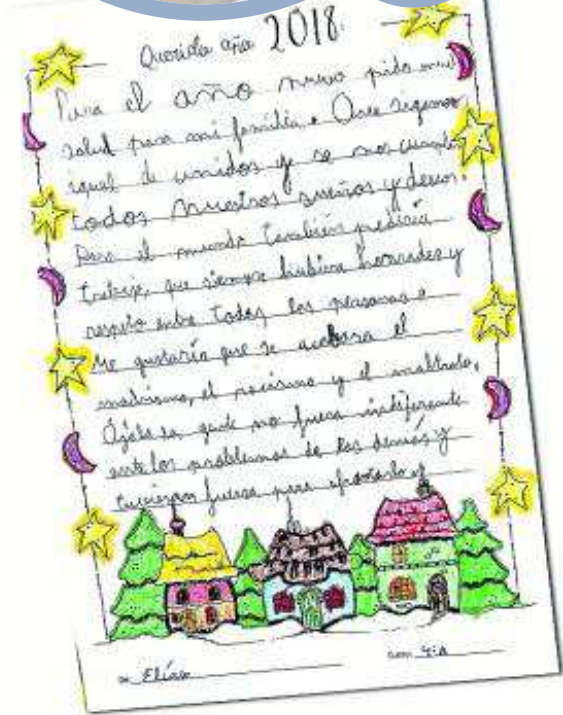 Querido año 2018.
Para el año nuevo pido
salud para mi familia. Que sigamos
igual de unidos y se nos cumplan
todos nuestros sueños y deseos.
Para el mundo también pediría
trabajo, que siempre hubiera honradez y
respeto entre todas las personas.
Me gustaría que se acabara el
machismo, el racismo y el maltrato.
Ojala la gente no fuera indiferente
ante los problemas de los demás y
tuvieran fuerza para
Elías 4ºA